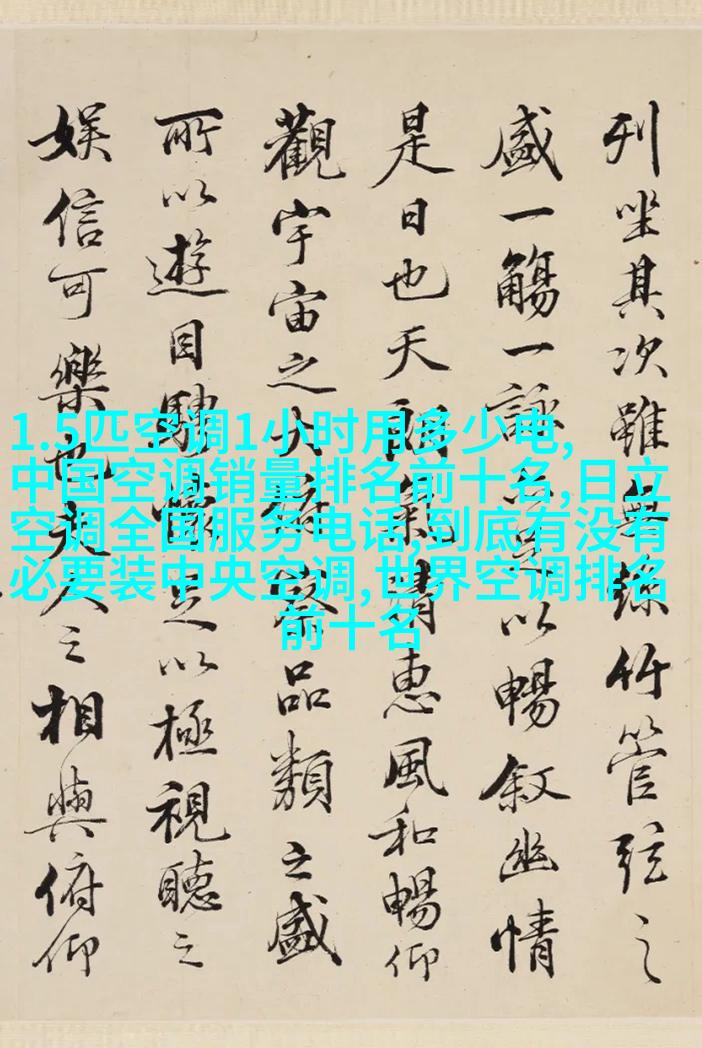 列坐其次雖無絲竹管弦之
盛一觴一詠亦足以暢叙幽情
是日也天朗氣清惠風和暢仰
觀宇宙之大俯察品類之盛
所以遊目騁懷足以極視聽之
娛信可樂也夫人之相與俯仰
1.5匹空调1小时用多少电,
中国空调销量排名前十名,日立
空调全国服务电话,到底有没有
必要装中央空调,世界空调排名
前十名